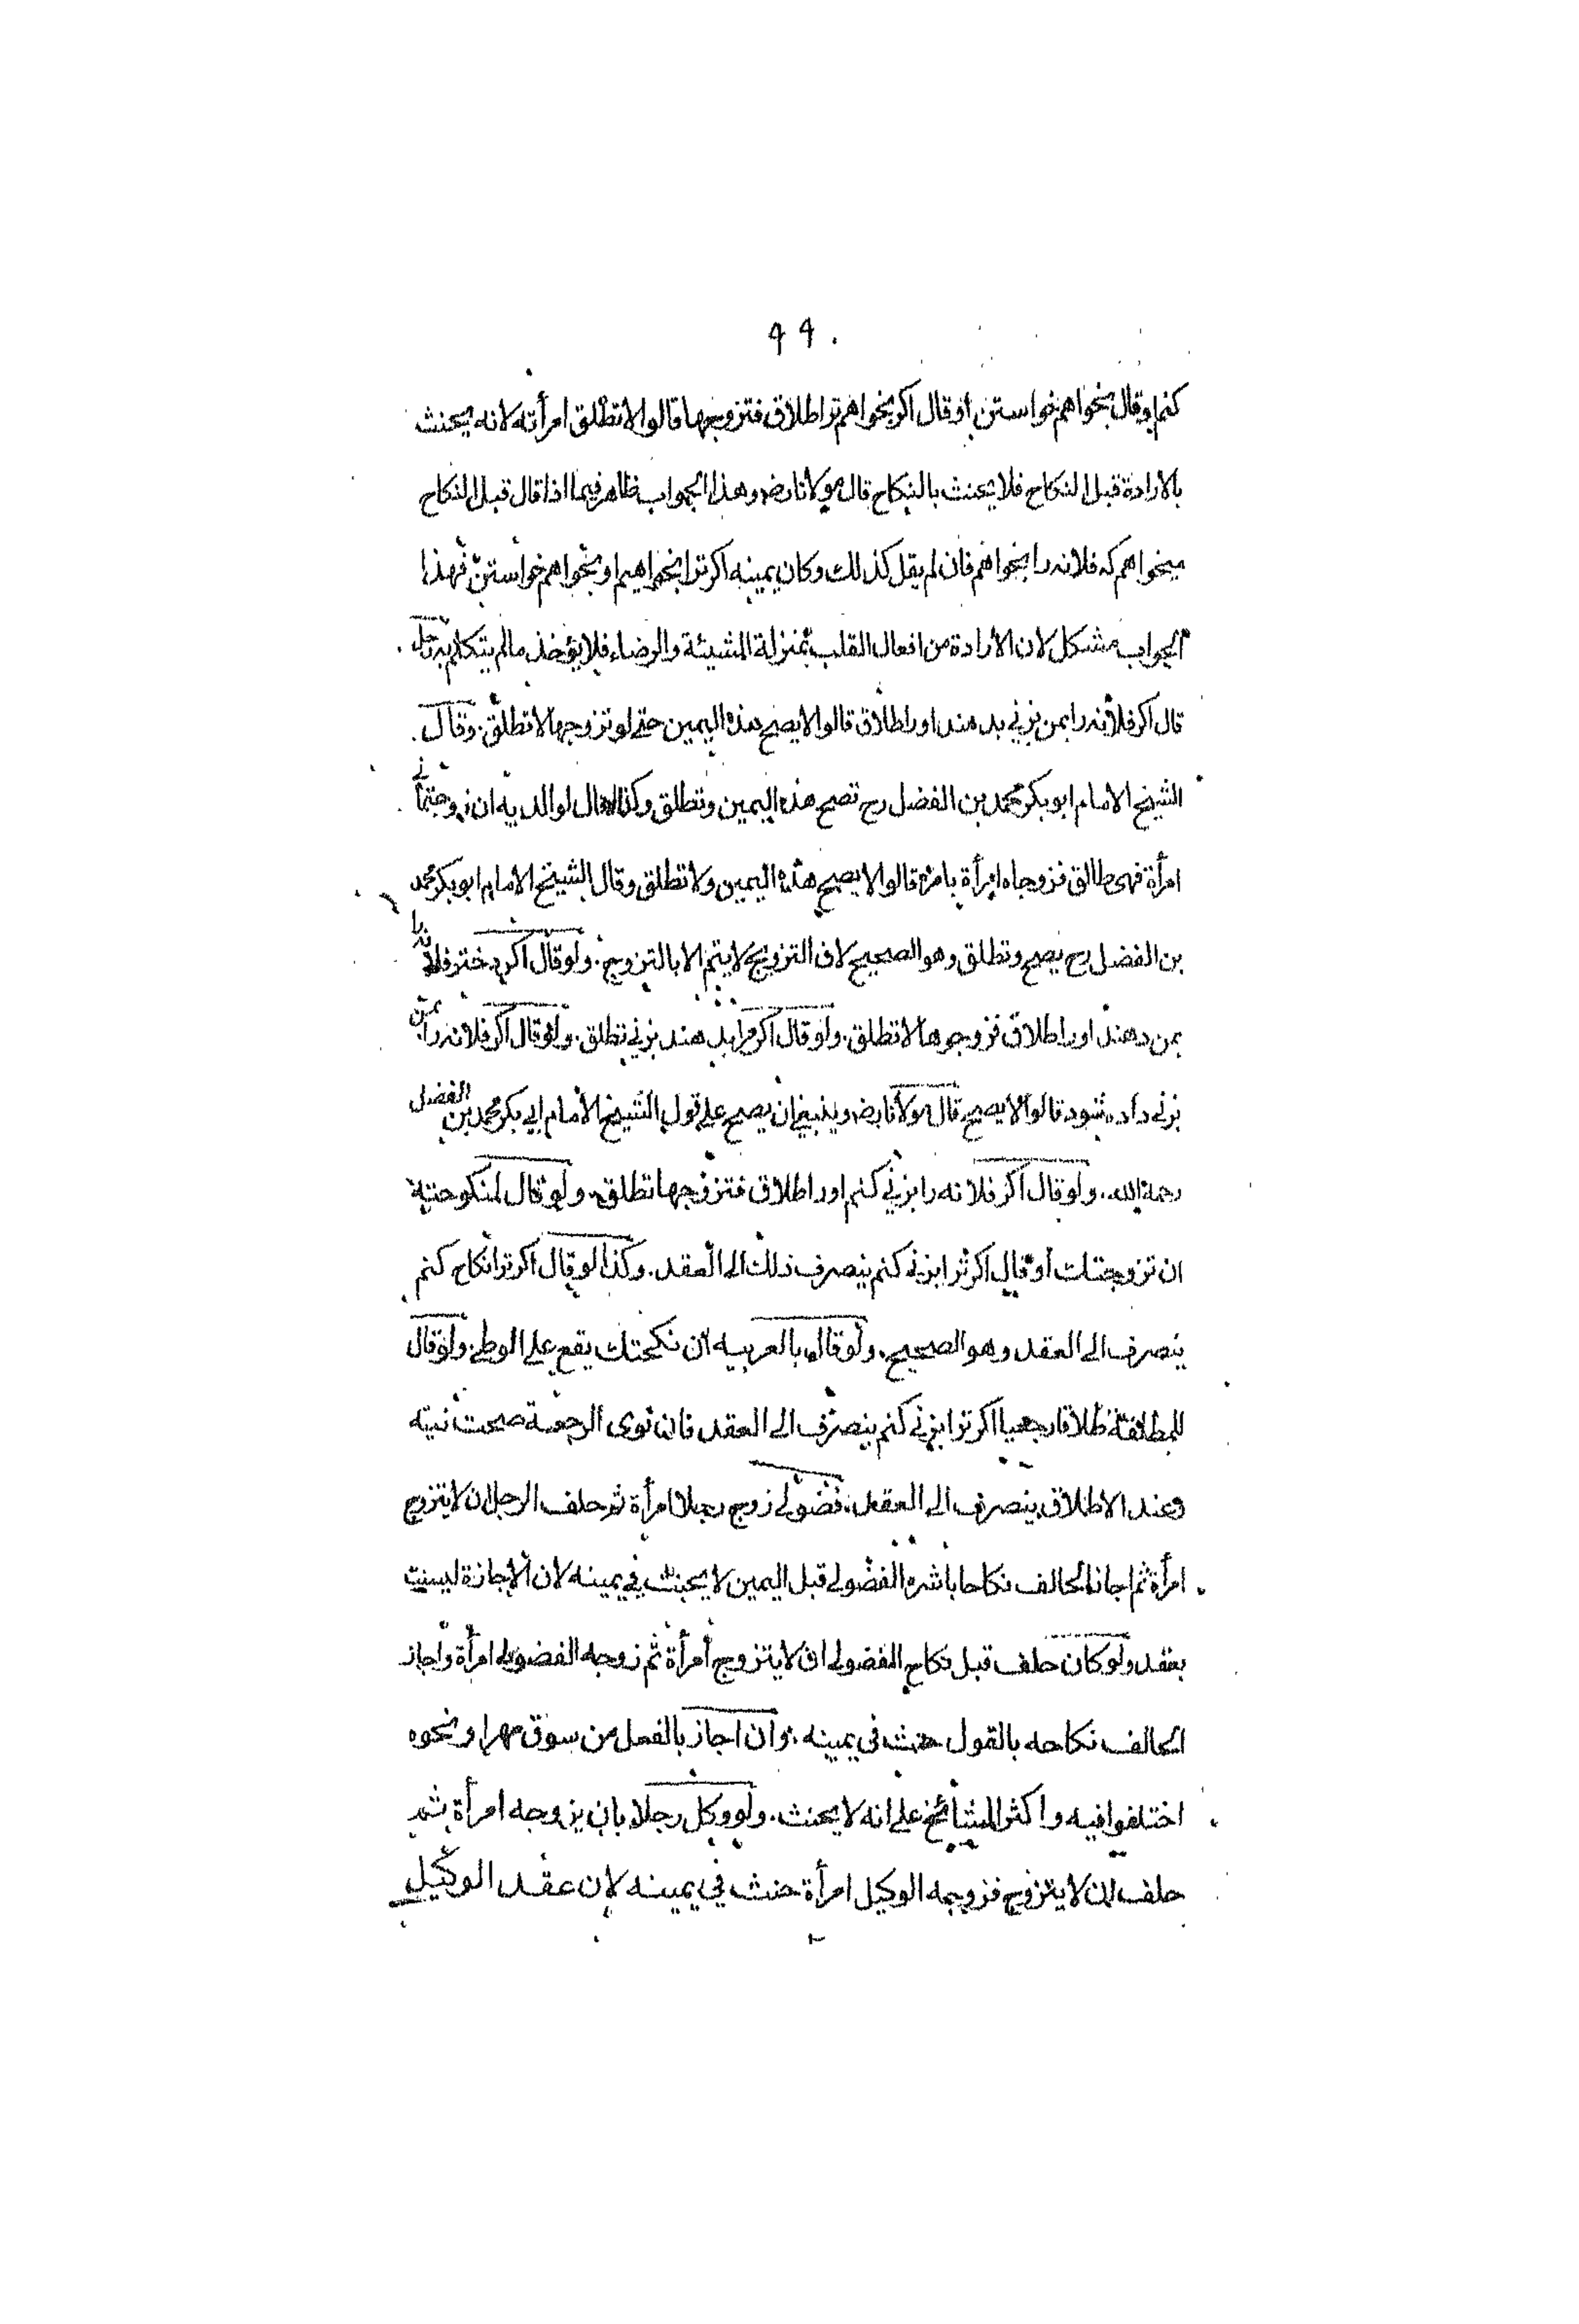 ٩٩
كنم او قال بخواهم خواستن او قال اكر بخواهم ترا طلاق فتزوجها قالوا لا تطلق امرأته لانه يحنث
بالارادة قبل النكاح فلا يحنث بالنكاح قال مولانا رض وهذا الجواب ظاهر فيما اذا قال قبل النكاح
ميخواهم كه فلانه را بخواهم فان لم يقل كذلك وكان يمينه اكر ترا بخواهيم او بخواهم خواستن فهذا
الجواب مشكل لان الارادة من افعال القلب بمنزلة المشيئة والرضاء فلا يؤخذ مالم يتكلم به رجل
قال اكر فلانه را بمن بزني بدهند او را طلاق قالوا لا يصح هذه اليمين حتى لو تزوجها لا تطلق وقال
الشيخ الامام ابو بكر محمد بن الفضل رح تصح هذه اليمين وتطلق وكذا لو قال لوالديه ان زوجتماني
امرأة فهى طالق فزوجاه امرأة بامره قالوا لا يصح هذه اليمين ولا تطلق وقال الشيخ الامام ابو بكر محمد
بن الفضل رح يصح وتطلق وهو الصحيح لان التزويج لا يتم الا بالتزوج ولو قال اكر دختر فلانه را
بمن دهند او را طلاق فزوجوها لا تطلق ولو قال اكر مرا بدهند بزني تطلق ولو قال اكر فلانه را بمن
بزنى داده شود قالوا لا يصح قال مولانا رض وينبغي ان يصح على قول الشيخ الامام ابي بكر محمد بن الفضل
رحمة الله ولو قال اكر فلانه را بزني كنم او را طلاق فتزوجها تطلق ولو قال لمنكوحته
ان تزوجتك او قال اكر ترا بزني كنم ينصرف ذلك الى العقد وكذا لو قال اكر ترا نكاح كنم
ينصرف الى العقد وهو الصحيح ولو قال بالعربيه ان نكحتك يقع على الوطي ولو قال
للمطلقة طلاقا رجعيا اكر ترا بزني كنم ينصرف الى العقد فان نوى الرجعة صحت نيته
وعند الاطلاق ينصرف الى العقد فضولي زوج رجلا امرأة ثم حلف الرجل ان لا يتزوج
امرأة ثم اجاز الحالف نكاحا باشره الفضولي قبل اليمين لا يحنث في يمينه لان الاجازة ليست
بعقد ولو كان حلف قبل نكاح الفضولي ان لا يتزوج امرأة ثم زوجه الفضولي امرأة واجاز
الحالف نكاحه بالقول حنث في يمينه وان اجاز بالفعل من سوق مهر او نحوه
اختلفوا فيه واكثر المشائخ على انه لا يحنث ولو وكل رجلا بان يزوجه امرأة ثم
حلف ان لا يتزوج فزوجه الوكيل امرأة حنث في يمينه لان عقد الوكيل